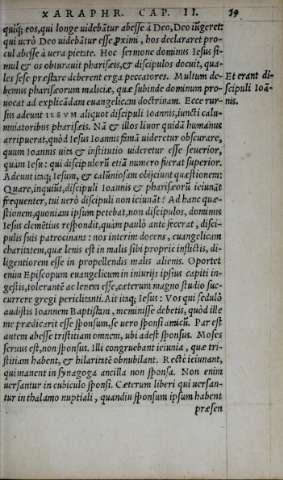 XARAPHR. CAP. II. 59
quiq; eos, qui longe uidebātur abesse à Deo, Deo iūgeret
qui uerò Deo uidebātur esse ꝓximi, hos declararet pro-
cul abesse à uera pietate. Hoc sermone dominus Iesus si-
mul & os obturauit pharisæis, & discipulos docuit, qua-
les sese præstare deberent erga peccatores. Multum de-
bemus pharisæorum maliciæ, quæ subinde dominum pro-
uocat ad explicādam euangelicam doctrinam. Ecce rur-
sus adeunt IESVM aliquot discipuli Ioannis, iuncti calum-
niatoribus pharisæis. Nā & illos liuor quidā humanus
arripuerat, quòd Iesus Ioannis famā uideretur obscurare,
quum Ioannis uita & institutio uideretur esse seuerior,
quàm Iesu: qui discipulorū etiā numero fuerat superior.
Adeunt itaq; Iesum, & calūniosam obijciunt quæstionem:
Quare, inquiūt, discipuli Ioannis & pharisæorū ieiunāt
frequenter, tui uerò discipuli non ieiunāt? Ad hanc quæ-
stionem, quoniam ipsum petebat, non discipulos, dominus
Iesus clemētius respondit, quàm paulò antè fecerat, disci-
pulis suis patrocinans: nos interim docens, euangelicam
charitatem, quæ lenis est in malis sibi propriè inflictis, di-
ligentiorem esse in propellendis malis alienis. Oportet
enim Episcopum euangelicum in iniurijs ipsius capiti in-
gestis, tolerantē ac lenem esse, cæterum magno studio suc-
currere gregi periclitanti. Ait itaq; Iesus: Vos qui sedulò
audistis Ioannem Baptistam, meminisse debetis, quòd ille
me prædicarit esse sponsum, se uero sponsi amicū. Par est
autem abesse tristitiam omnem, ubi adest sponsus. Moses
seruus est, non sponsus. Illi congruebant ieiunia, quæ tri-
stitiam habent, & hilaritatē obnubilant. Rectè ieiunant,
qui manent in synagoga ancilla non sponsa. Non enim
uersantur in cubiculo sponsi. Cæterum liberi qui uersan-
tur in thalamo nuptiali, quandiu sponsum ipsum habent
præsen
Et erant di-
scipuli Ioā-
nis.